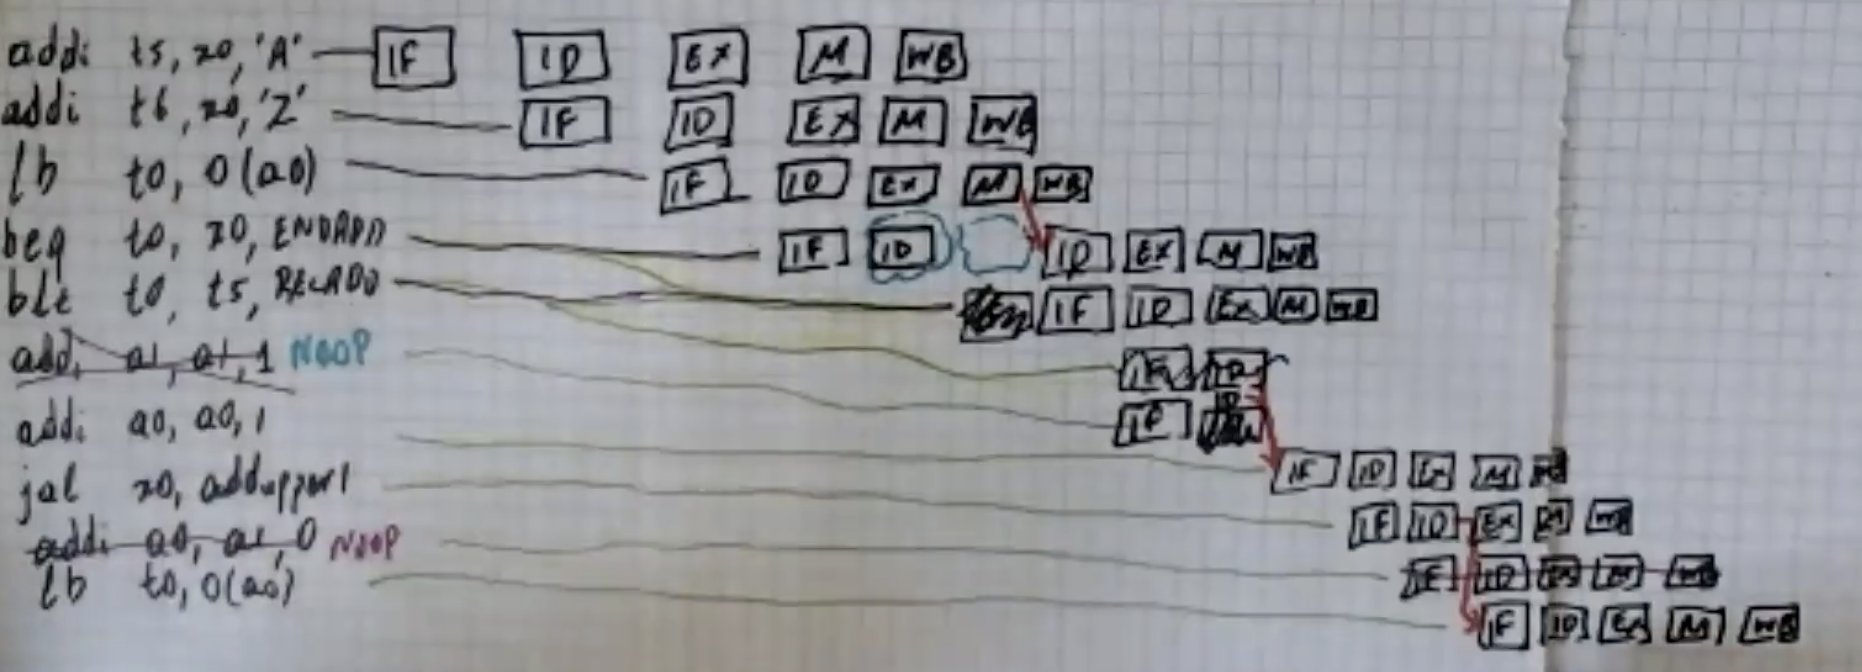 addi t5, x0, 'A' IF ID EX M WB
addi t6, x0, 'Z' IF ID EX M WB
lb t0, 0(a0) IF ID EX M WB
beq t0, x0, IF ID ID EX M WB
blt t0, t5, IF ID EX M WB
addi a1, a1, 1 NOOP IF
addi a0, a0, 1 IF
jal x0, IF ID EX M
addi a0, a1, 0 NOOP IF ID EX M WB
lb t0, 0(a0) IF ID EX M WB
IF ID EX M WB